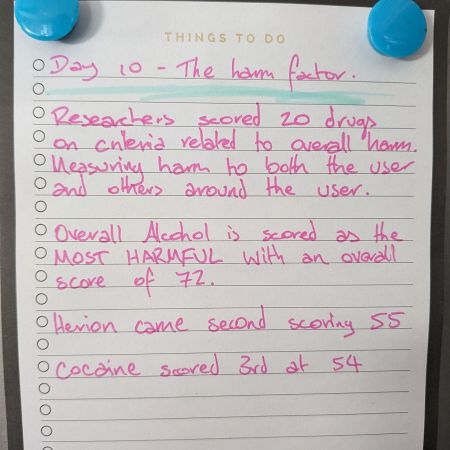 THINGS TO DO
Day 10 - The harm factor.
Researchers scored 20 drugs
on criteria related to overall harm.
Measuring harm to both the user
and others around the user.
Overall Alcohol is scored as the
MOST HARMFUL with an overall
score of 72.
Herion came second scoring 55
Cocaine scored 3rd at 54